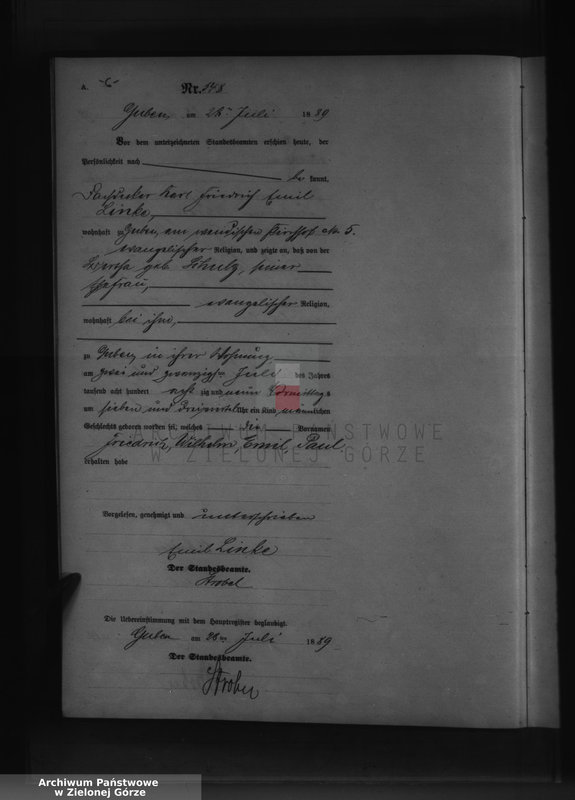 A.
Nr. 548
Guben, am 26ten Juli 1889
Vor dem unterzeichneten Standesbeamten erschien heute, der
Persönlichkeit nach
be kannt,
Dachdecker Karl Friedrich Emil
Linke,
wohnhaft zu Guben, am wendischen Kirchhof No 5.
evangelischer Religion, und zeigte an, daß von der
Bertha geb. Schulz, seiner
Ehefrau,
evangelischer Religion,
wohnhaft bei ihm,
zu Guben in ihrer Wohnung
am zwei und zwanzigsten Juli des Jahres
tausend acht hundert acht zig und neun Vormittags
um sieben und dreiviertel Uhr ein Kind männlichen
Geschlechts geboren worden sei, welches die Vornamen
Friedrich, Wilhelm, Emil, Paul
erhalten habe
Vorgelesen, genehmigt und unterschrieben
Emil Linke
Der Standesbeamte.
Strobel
Die Uebereinstimmung mit dem Hauptregister beglaubigt.
Guben am 26ten Juli 1889
Der Standesbeamte.
Strobel
ARCHIWUM PAŃSTWOWE
W ZIELONEJ GÓRZE
Archiwum Państwowe
w Zielonej Górze